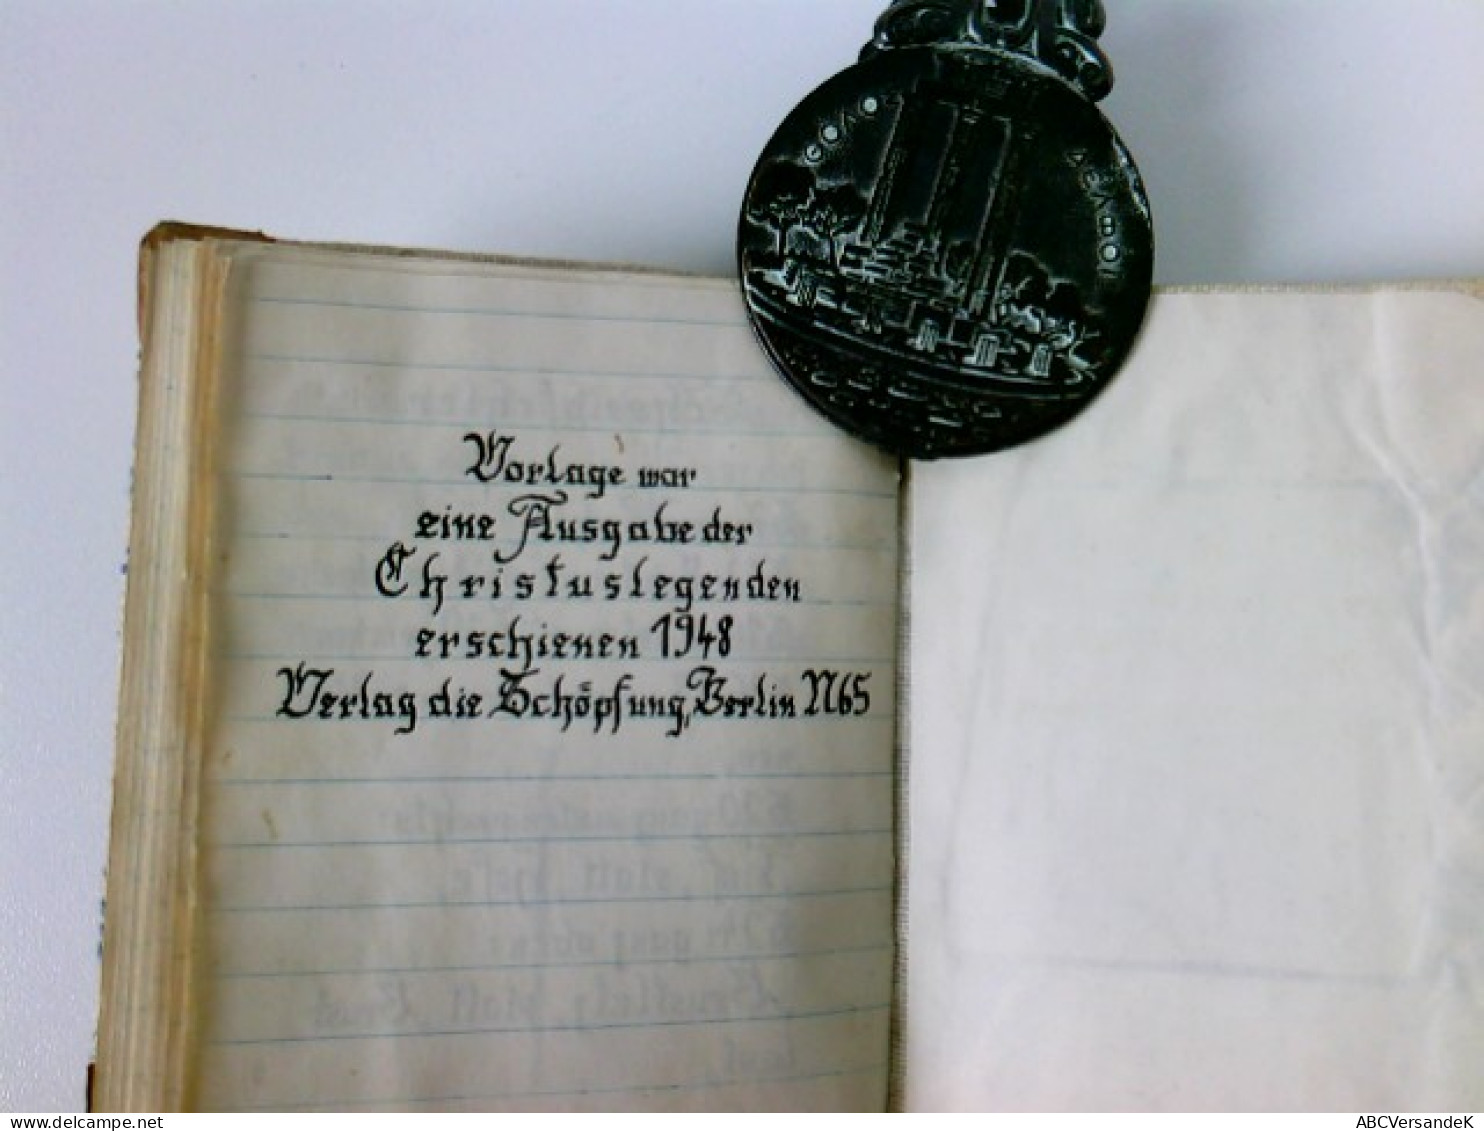 ΘΟΛΟΣ
ΔΕΛΦΟΙ
Vorlage war
eine Ausgabe der
Christuslegenden
erschienen 1948
Verlag die Schöpfung, Berlin N65
ABCVersandeK